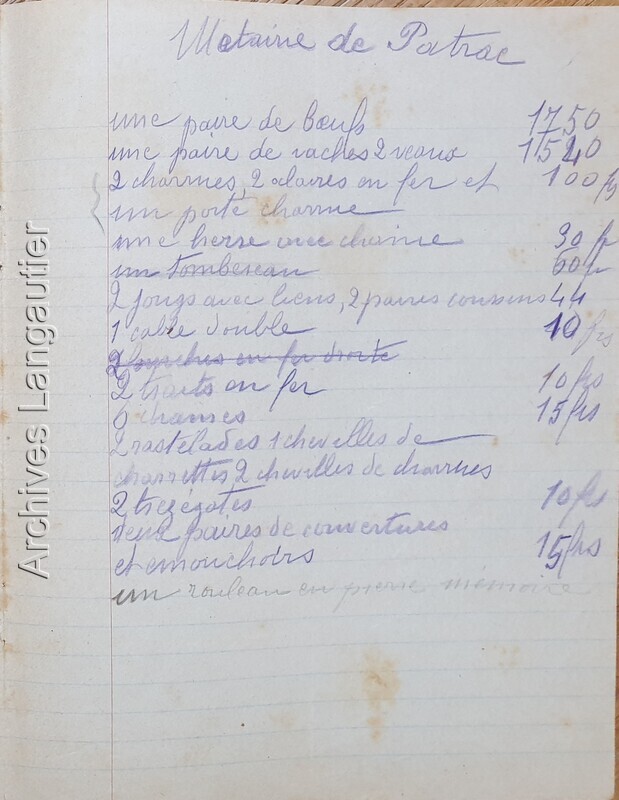 Metairie de Patrac
une paire de bœufs 1750
une paire de vaches 2 veaux 1520
2 charrues, 2 claires en fer et 100 frs
un porte charrue
une herse avec chaine 30 fr
un tombereau 60 fr
2 jougs avec liens, 2 paires coussins 44
1 cable double 10 frs
2 fourches en fer droite
2 traits en fer 10 frs
6 chaines 15 frs
2 rastelades 1 chevilles de
charrettes 2 chevilles de charrues
2 trezégates 10 frs
deux paires de couvertures
et emouchoirs 15 frs
un rouleau en pierre mémoire
Archives Langautier